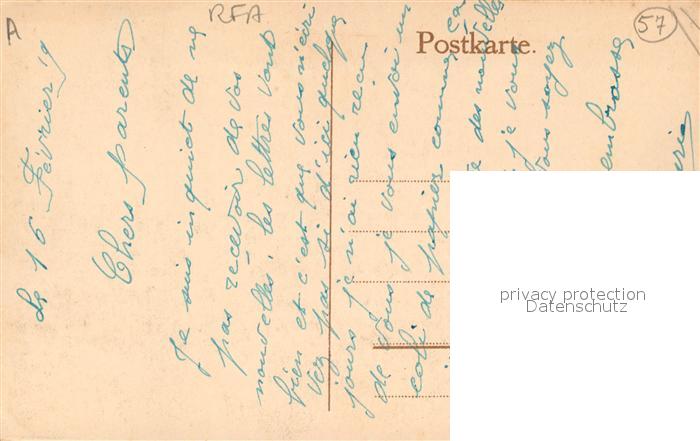 A
RFA
57
Postkarte.
Le 16 Février 19
Chers parents
Je suis inquiet de ne
pas recevoir de vos
nouvelles, les lettres vont
bien et c'est que vous n'écri
vez pas si d'ici quelques
jours je n'ai rien reçu
de vous je vous envoi un
coli de papier comme ça
des nouvelles
je vous
vous soyez
embrasse
privacy protection
Datenschutz